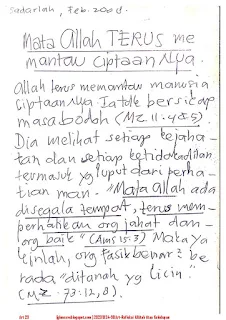 Sadarlah, Feb. 2008.
Mata Allah TERUS me
mantau CiptaanNya.
Allah terus memantau manusia
ciptaanNya Ia tdk bersicap
masabodoh (MZ. 11:4,5).
Dia melihat setiap kejaha-
tan dan setiap ketidakadilan
termasuk yg luput dari perha-
tian man. "Mata Allah ada
disegala tempat, terus mem-
perhatikan org jahat dan
org baik" (Ams 15:3) Maka ya
kinlah, org Fasik benar2 be
rada "ditanah yg licin"
(MZ. 73:12,8).